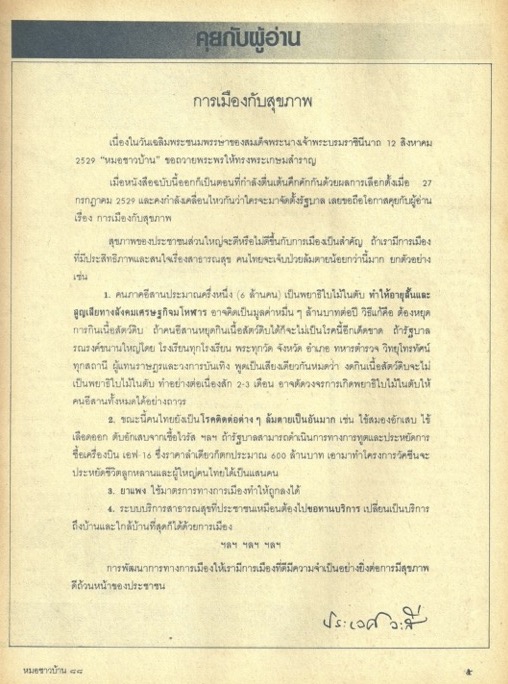 คุยกับผู้อ่าน
การเมืองกับสุขภาพ
เนื่องในวันเฉลิมพระชนมพรรษาของสมเด็จพระนางเจ้าพระบรมราชินีนาถ 12 สิงหาคม
2529 "หมอชาวบ้าน" ขอถวายพระพรให้ทรงพระเกษมสำราญ
เมื่อหนังสือฉบับนี้ออกก็เป็นตอนที่กำลังตื่นเต้นคึกคักกันด้วยผลการเลือกตั้งเมื่อ 27
กรกฎาคม 2529 และคงกำลังเคลื่อนไหวกันว่าใครจะมาจัดตั้งรัฐบาล เลยขอถือโอกาสคุยกับผู้อ่าน
เรื่อง การเมืองกับสุขภาพ
สุขภาพของประชาชนส่วนใหญ่จะดีหรือไม่ดีขึ้นกับการเมืองเป็นสำคัญ ถ้าเรามีการเมือง
ที่มีประสิทธิภาพและสนใจเรื่องสาธารณสุข คนไทยจะเจ็บป่วยล้มตายน้อยกว่านี้มาก ยกตัวอย่าง
เช่น
1. คนภาคอีสานประมาณครึ่งหนึ่ง (6 ล้านคน) เป็นพยาธิใบไม้ในตับ ทำให้อายุสั้นและ
สูญเสียทางสังคมเศรษฐกิจมโหฬาร อาจคิดเป็นมูลค่าหมื่น ๆ ล้านบาทต่อปี วิธีแก้คือ ต้องหยุด
การกินเนื้อสัตว์ดิบ ถ้าคนอีสานหยุดกินเนื้อสัตว์ดิบได้ก็จะไม่เป็นโรคนี้อีกเด็ดขาด ถ้ารัฐบาล
รณรงค์ขนานใหญ่โดย โรงเรียนทุกโรงเรียน พระทุกวัด จังหวัด อำเภอ ทหารตำรวจ วิทยุโทรทัศน์
ทุกสถานี ผู้แทนราษฎรและวงการบันเทิง พูดเป็นเสียงเดียวกันหมดว่า งดกินเนื้อสัตว์ดิบจะไม่
เป็นพยาธิใบไม้ในตับ ทำอย่างต่อเนื่องสัก 2-3 เดือน อาจตัดวงจรการเกิดพยาธิใบไม้ในตับให้
คนอีสานทั้งหมดได้อย่างถาวร
2. ขณะนี้คนไทยยังเป็นโรคติดต่อต่าง ๆ ล้มตายเป็นอันมาก เช่น ไข้สมองอักเสบ ไข้
เลือดออก ตับอักเสบจากเชื้อไวรัส ฯลฯ ถ้ารัฐบาลสามารถดำเนินการทางการทูตและประหยัดการ
ซื้อเครื่องบิน เอฟ-16 ซึ่งราคาลำเดียวก็ตกประมาณ 600 ล้านบาท เอามาทำโครงการวัคซีนจะ
ประหยัดชีวิตลูกหลานและผู้ใหญ่คนไทยได้เป็นแสนคน
3. ยาแพง ใช้มาตรการทางการเมืองทำให้ถูกลงได้
4. ระบบบริการสาธารณสุขที่ประชาชนเหมือนต้องไปขอทานบริการ เปลี่ยนเป็นบริการ
ถึงบ้านและใกล้บ้านที่สุดก็ได้ด้วยการเมือง
ฯลฯ ฯลฯ ฯลฯ
การพัฒนาการทางการเมืองให้เรามีการเมืองที่ดีมีความจำเป็นอย่างยิ่งต่อการมีสุขภาพ
ดีถ้วนหน้าของประชาชน
ประเวศ วะสี
หมอชาวบ้าน ๘๘